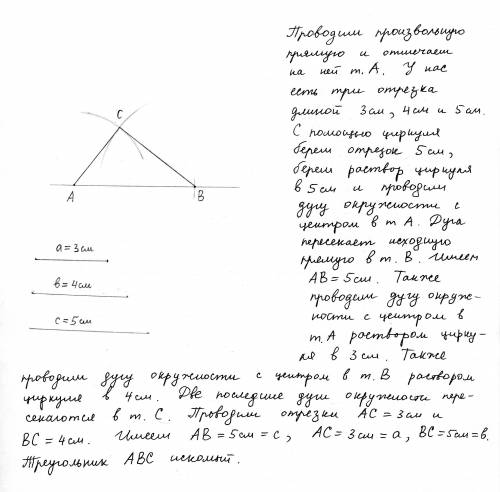 Проводим произвольную
прямую и отмечаем
на ней т. А. У нас
есть три отрезка
длиной 3см, 4см и 5см.
С помощью циркуля
берем отрезок 5см,
берем раствор циркуля
в 5см и проводим
дугу окружности с
центром в т А. Дуга
пересекает исходную
прямую в т. В. Имеем
АВ = 5см. Также
проводим дугу окруж-
ности с центром в
т. А раствором цирку-
ля в 3см. Также
проводим дугу окружности с центром в т. В раствором
циркуля в 4см. Две последние дуги окружности пере-
секаются в т. С. Проводим отрезки АС = 3см и
ВС = 4см. Имеем АВ = 5см = с, АС = 3см = а, ВС = 5см = в.
Треугольник АВС искомый.
С
А
В
а = 3см
в = 4см
с = 5см